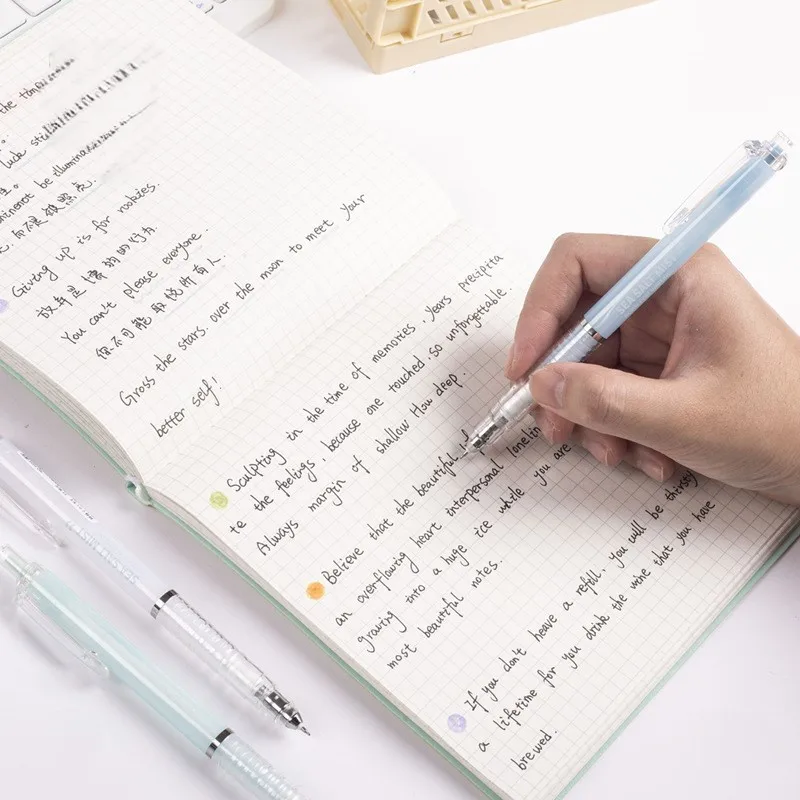 the
luck
not be illumina
Giving up is for rookies.
放弃是
You can't please everyone.
你不可能取悦所有人.
Gross the stars. over the moon to meet your
better self!
Sculpting in the time of memories. Years precipita
te the feelings. because one touched. so unforgettable.
Always margin of shallow How deep.
Believe that the beautiful
an overflowing heart interpersonal lonelin
graving into a huge ice while you are
most beautiful notes.
If you don't heave a refill. you will be thirsty
a lifetime for you drink the wine that you have
brewed.
SEA SALT